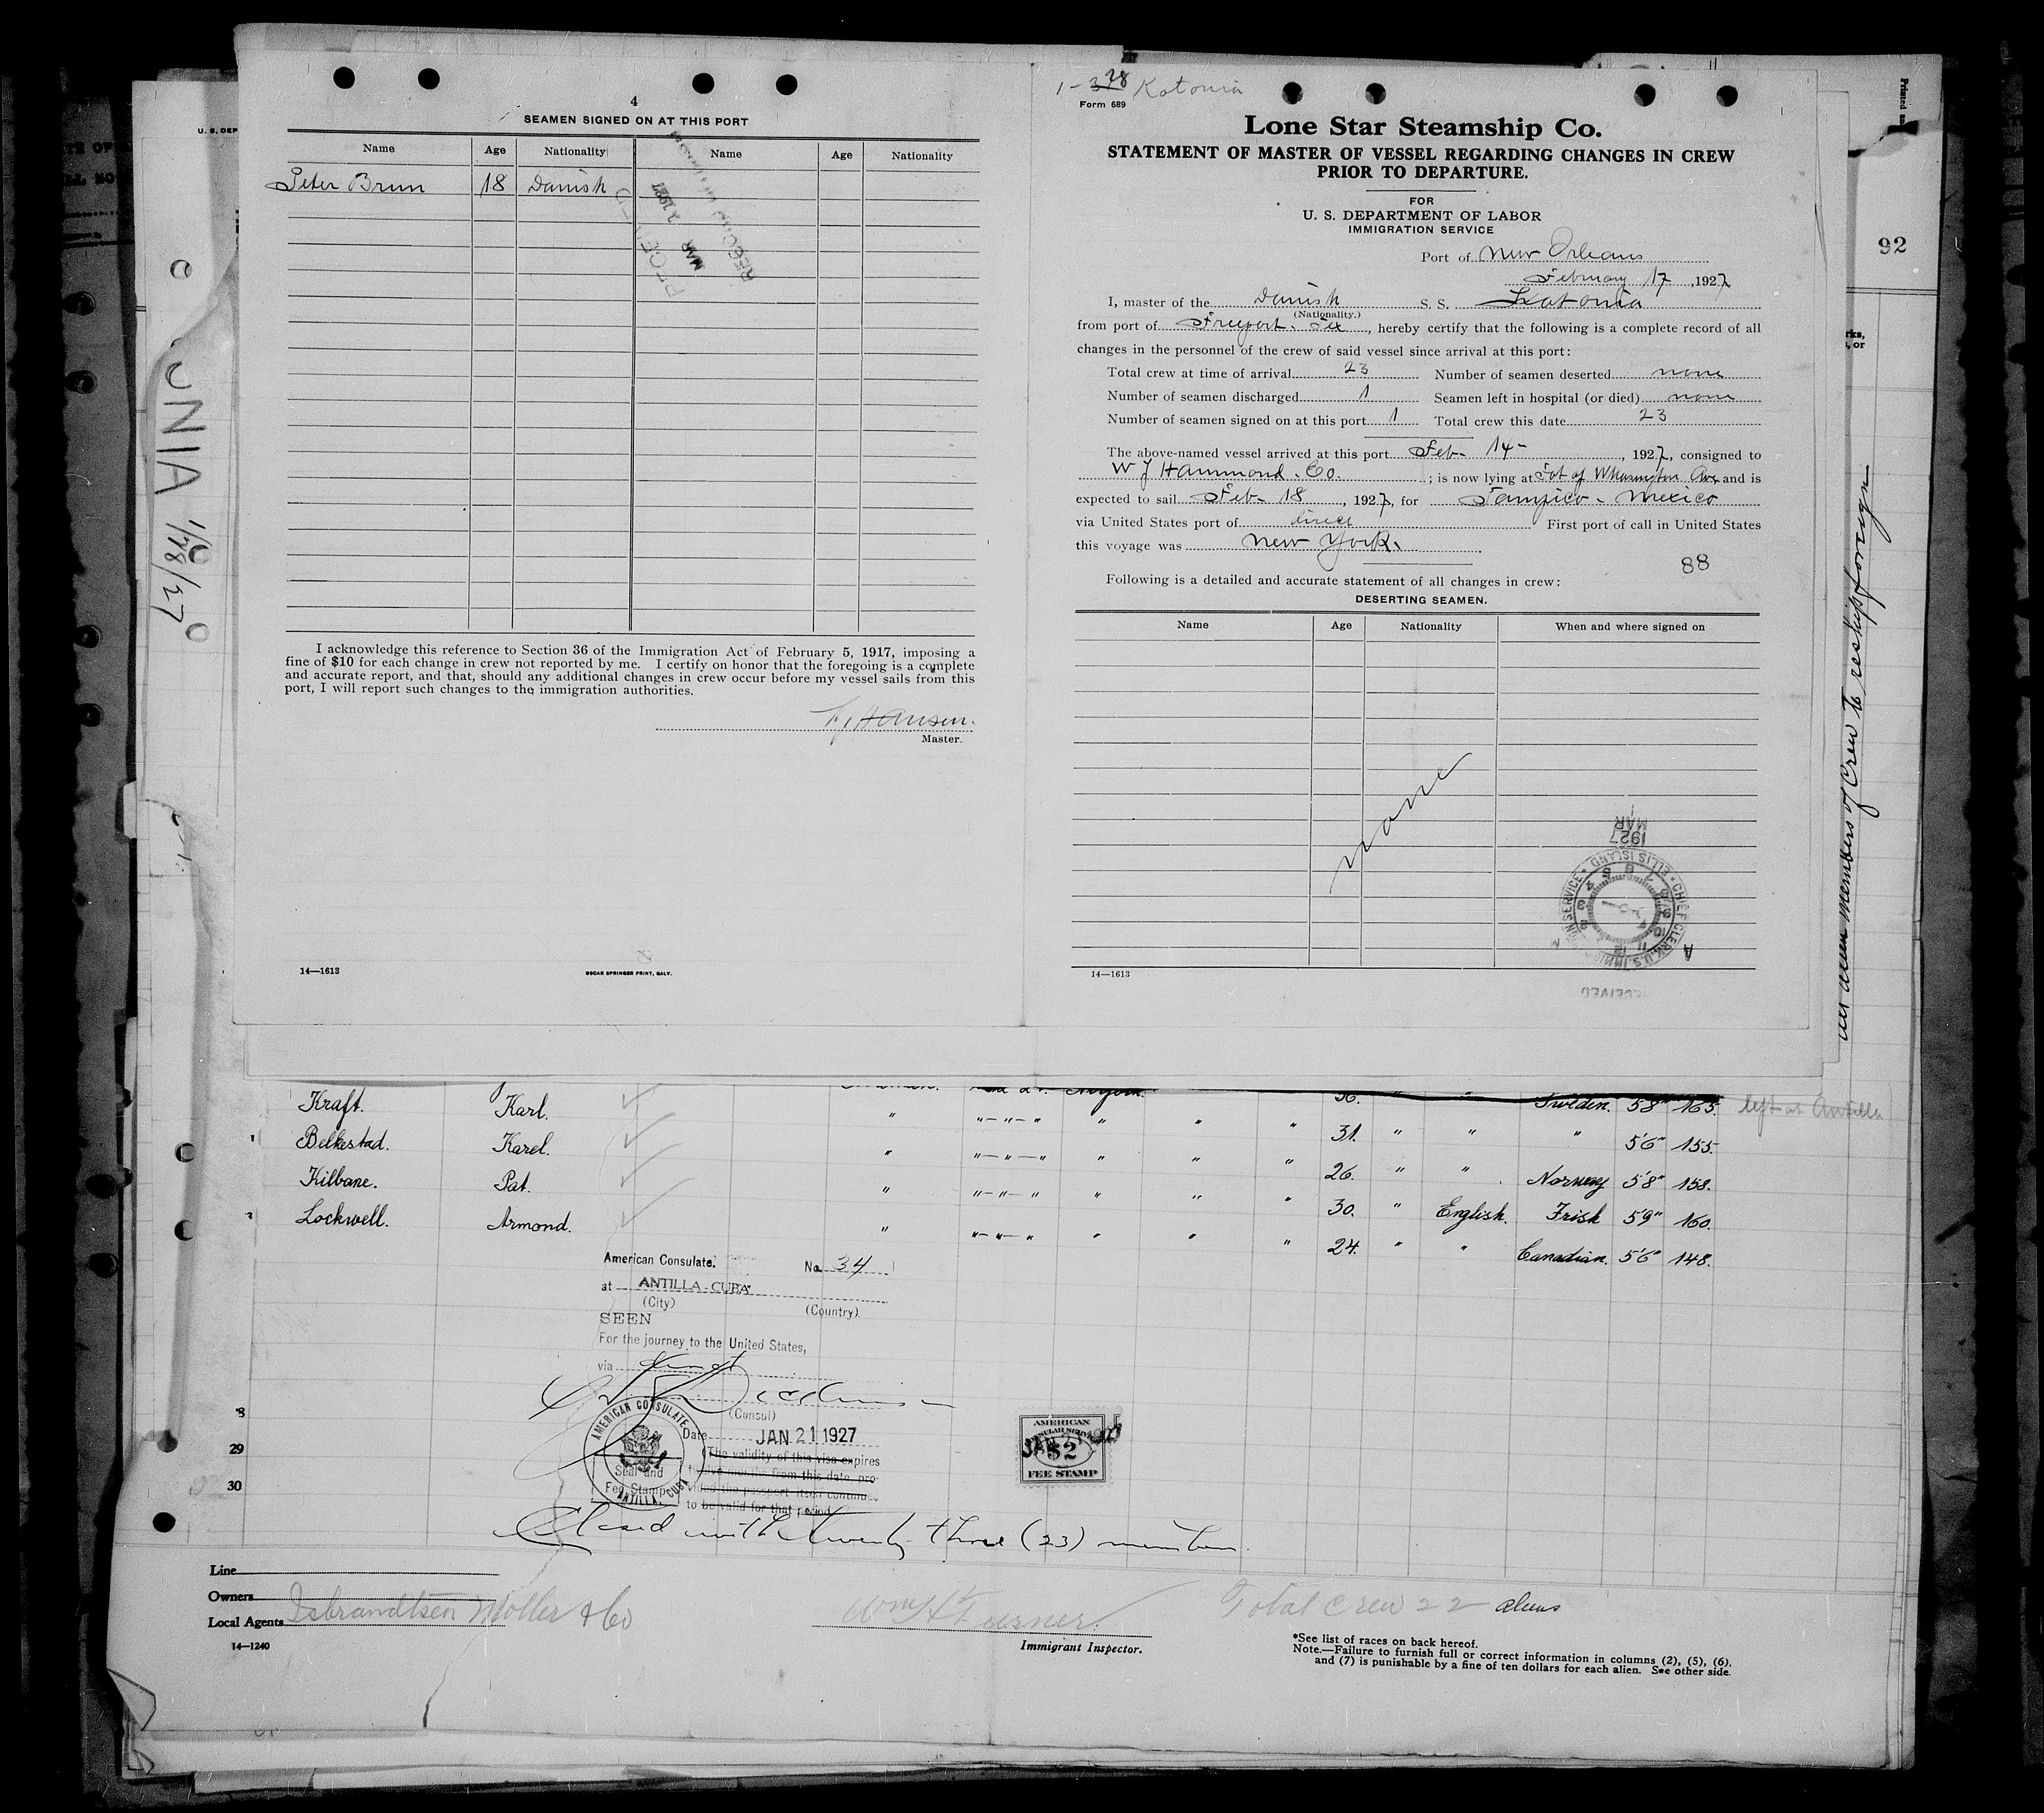 4
SEAMEN SIGNED ON AT THIS PORT
Name Age Nationality Name Age Nationality
Peter Brun 18 Danish
MAR 1927
I acknowledge this reference to Section 36 of the Immigration Act of February 5, 1917, imposing a
fine of $10 for each change in crew not reported by me. I certify on honor that the foregoing is a complete
and accurate report, and that, should any additional changes in crew occur before my vessel sails from this
port, I will report such changes to the immigration authorities.
Hansen.
Master.
14—1613
OSCAR SPRINGER PRINT, GALV.
Katonia
Form 689
Lone Star Steamship Co.
STATEMENT OF MASTER OF VESSEL REGARDING CHANGES IN CREW
PRIOR TO DEPARTURE.
FOR
U. S. DEPARTMENT OF LABOR
IMMIGRATION SERVICE
Port of New Orleans
February 17, 1927
I, master of the Danish S. S. Katonia
(Nationality.)
from port of Freeport. Tex, hereby certify that the following is a complete record of all
changes in the personnel of the crew of said vessel since arrival at this port:
Total crew at time of arrival 23 Number of seamen deserted none
Number of seamen discharged 1 Seamen left in hospital (or died) none
Number of seamen signed on at this port 1 Total crew this date 23
The above-named vessel arrived at this port Feb- 14-, 1927, consigned to
W J Hammond. Co.; is now lying at Fot of Washington Ave and is
expected to sail Feb- 18, 1927, for Tampico - Mexico
via United States port of direct First port of call in United States
this voyage was New York.
88
Following is a detailed and accurate statement of all changes in crew:
DESERTING SEAMEN.
Name Age Nationality When and where signed on
none
MAR 1927
CHIEF CLERK, U.S. IMMIGRATION SERVICE • ELLIS ISLAND
RECEIVED
14—1613
92
U. S. DEP
ONIA 1/28/27
all alien members of Crew to reship foreign
Kraft. Karl. 36. " " Sweden. 5'8" 165. left at Antilla
Belkestad. Karel. " "—"—" " " " 31. " " " 5'6" 155.
Kilbane. Pat. " "—"—" " " " 26. " " Norway 5'8" 158.
Lockwell. Armond. " "—"—" " " " 30. " English. Irish 5'9" 160.
" "—"—" " " " 24. " " Canadian. 5'6" 148.
American Consulate. No. 34
at ANTILLA-CUBA
(City) (Country).
SEEN
For the journey to the United States,
via direct
(Consul)
Date JAN 21 1927
(The validity of this visa expires
twelve months from this date, pro-
vided the passport itself continues
to be valid for that period.
AMERICAN CONSULATE
ANTILLA, CUBA
Seal and
Fee Stamp
AMERICAN
CONSULAR SERVICE
$2
FEE STAMP
29
30
Closed with twenty three (23) members.
Line
Owners
Local Agents Isbrandtsen Moller & Co
14—1240
Wm H Turner.
Immigrant Inspector.
Total Crew 22 aliens
*See list of races on back hereof.
Note.—Failure to furnish full or correct information in columns (2), (5), (6).
and (7) is punishable by a fine of ten dollars for each alien. See other side.